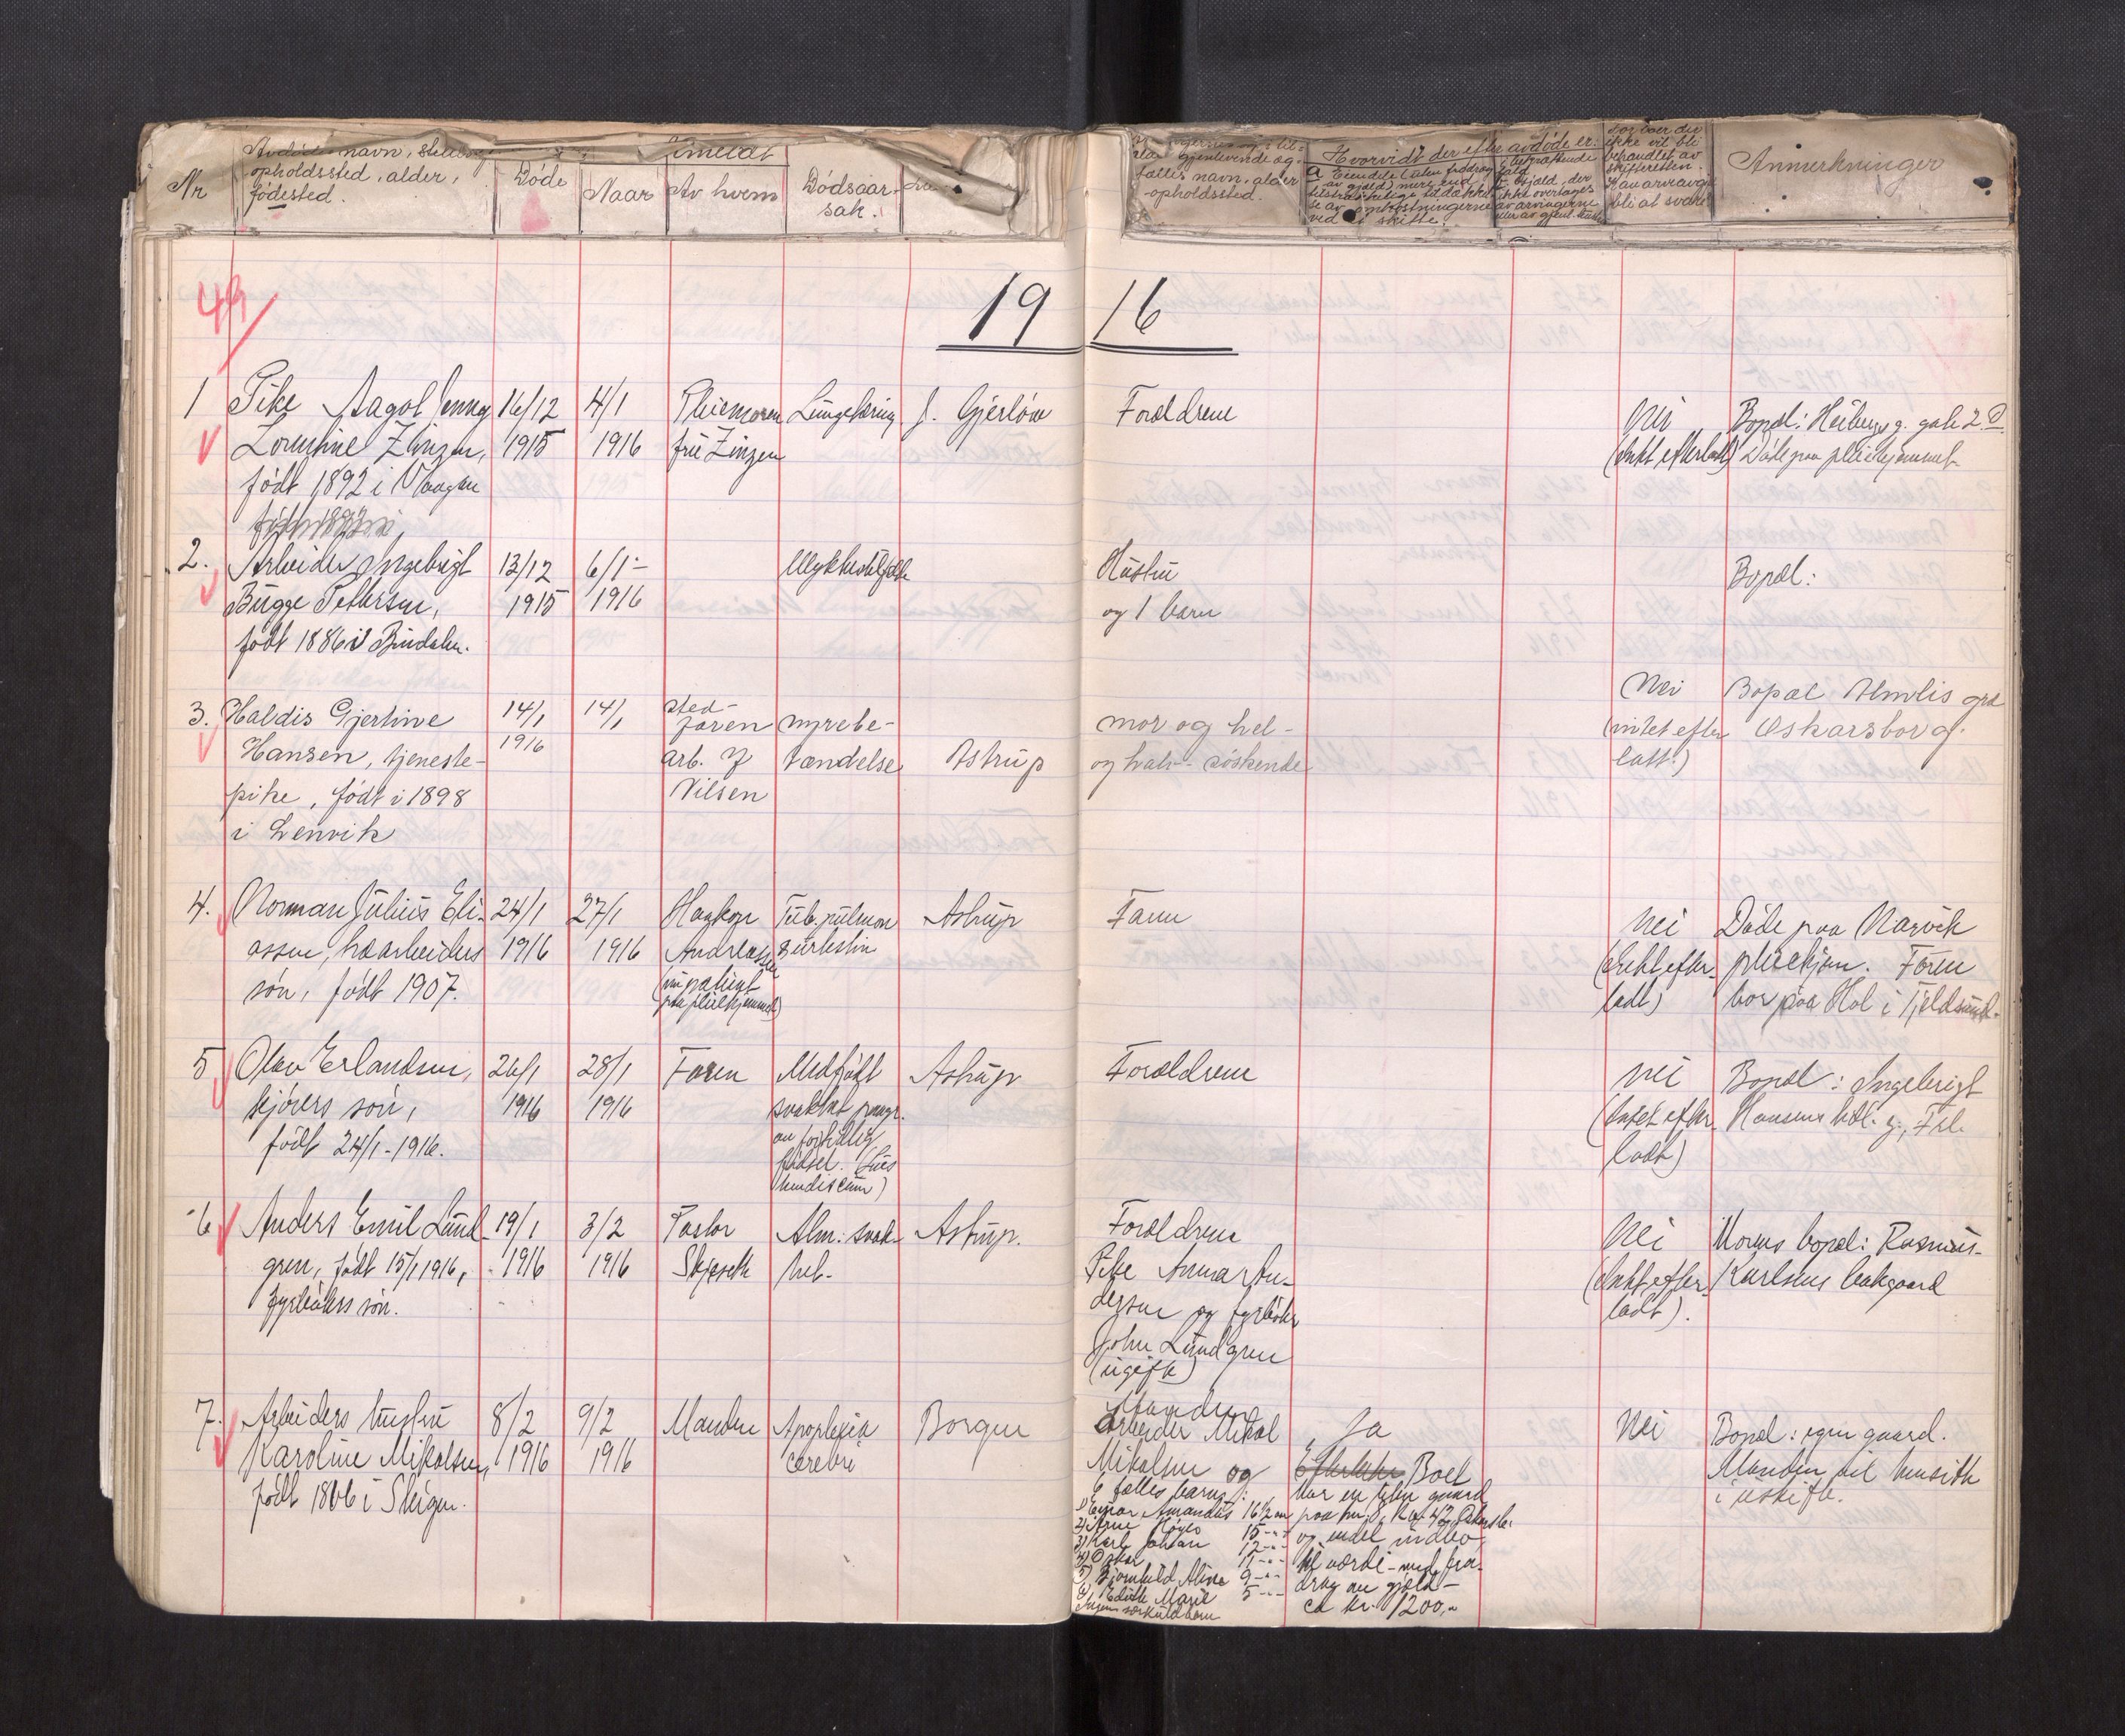 Nr
Avdødes navn, stilling
opholdssted, alder,
fødested.
Døde
Anmeldt
Naar
Av hvem
Dødsaar-
sak.
gjenlevende æg-
tefælles navn, alder
-opholdssted.
Hvorvidt der efter avdøde er:
Anmerkninger
49
19 16
1
Pike Aagot Jenny
født 1892 i Vaagan
16/12
1915
4/1
1916
Pleiemoren
fru Zinzen
Lungetæring
J. Gjerløw
Forældrene
Nei
(Intet efterladt)
Døde paa pleiehjemmet
2.
Arbeider Ingebrigt
Bugge Petersen,
født 1886 i Bindalen.
13/12
1915
6/1-
1916
Ulykkestilfælde
Hustru
og 1 barn
Bopæl:
3.
Haldis Gjertine
Hansen, tjeneste-
pike, født i 1898
i Lenvik
14/1
1916
14/1
sted-
faren
arb. J
Nilsen
nyrebe-
tændelse
Astrup
mor og hel-
og halv-søskende
Nei
(intet efter
latt.)
Bopæl Almlis grd
Oskarsborg.
4.
Norman Julius Eli-
assen, havarbeiders
søn, født 1907.
24/1
1916
27/1
1916
Haakon
Andreassen
(paa pleiehjemmet)
Tub. pulmon
Astrup
Faren
Nei
(Intet efter-
ladt)
Døde paa Narvik
pleiehjem. Faren
bor paa Hol i Tjeldsund.
5
Olav Erlandsen,
kjørers søn,
født 24/1-1916.
26/1
1916
28/1
1916
Faren
Medfødt
svakhet paagr.
av fortidlig
fødsel.
Astrup
Forældrene
Nei
(Intet efter-
ladt)
Bopæl: Ingebrigt
6
Anders Emil Lund-
gren, født 15/1 1916,
fyrbøters søn.
19/1
1916
3/2
1916
Pastor
Skjeseth
Alm. svak-
het-
Astrup.
Forældrene
Pike Anna An-
dersen og fyrbøter
John Lundgren
(ugift)
Nei
(Intet efter-
ladt).
Morens bopæl: Rasmus-
Karlsens bakgaard
7.
Arbeiders hustru
Karoline Mikalsen,
født 1866 i Steigen.
8/2
1916
9/2
1916
Manden
Apoplexia
cerebri
Borgen
Manden
arbeider Mikal
Mikalsen og
6 fælles barn:
1) Einar Amandus 16 1/2 aar
2) Arne 15 - " -
3) Karl Johan 12 - " -
4) Oskar 11 - " -
5) Bjornhild Alvine 9 - " -
6) Edith Marie 5 - " -
Ingen særkuldbarn
Ja
Boet
har en liten gaard
og endel indbo,
til værdi - med fra-
drag av gjæld -
ca kr. 1200,-
Nei
Bopæl: egen gaard.
Manden vil hensitte
i uskifte.